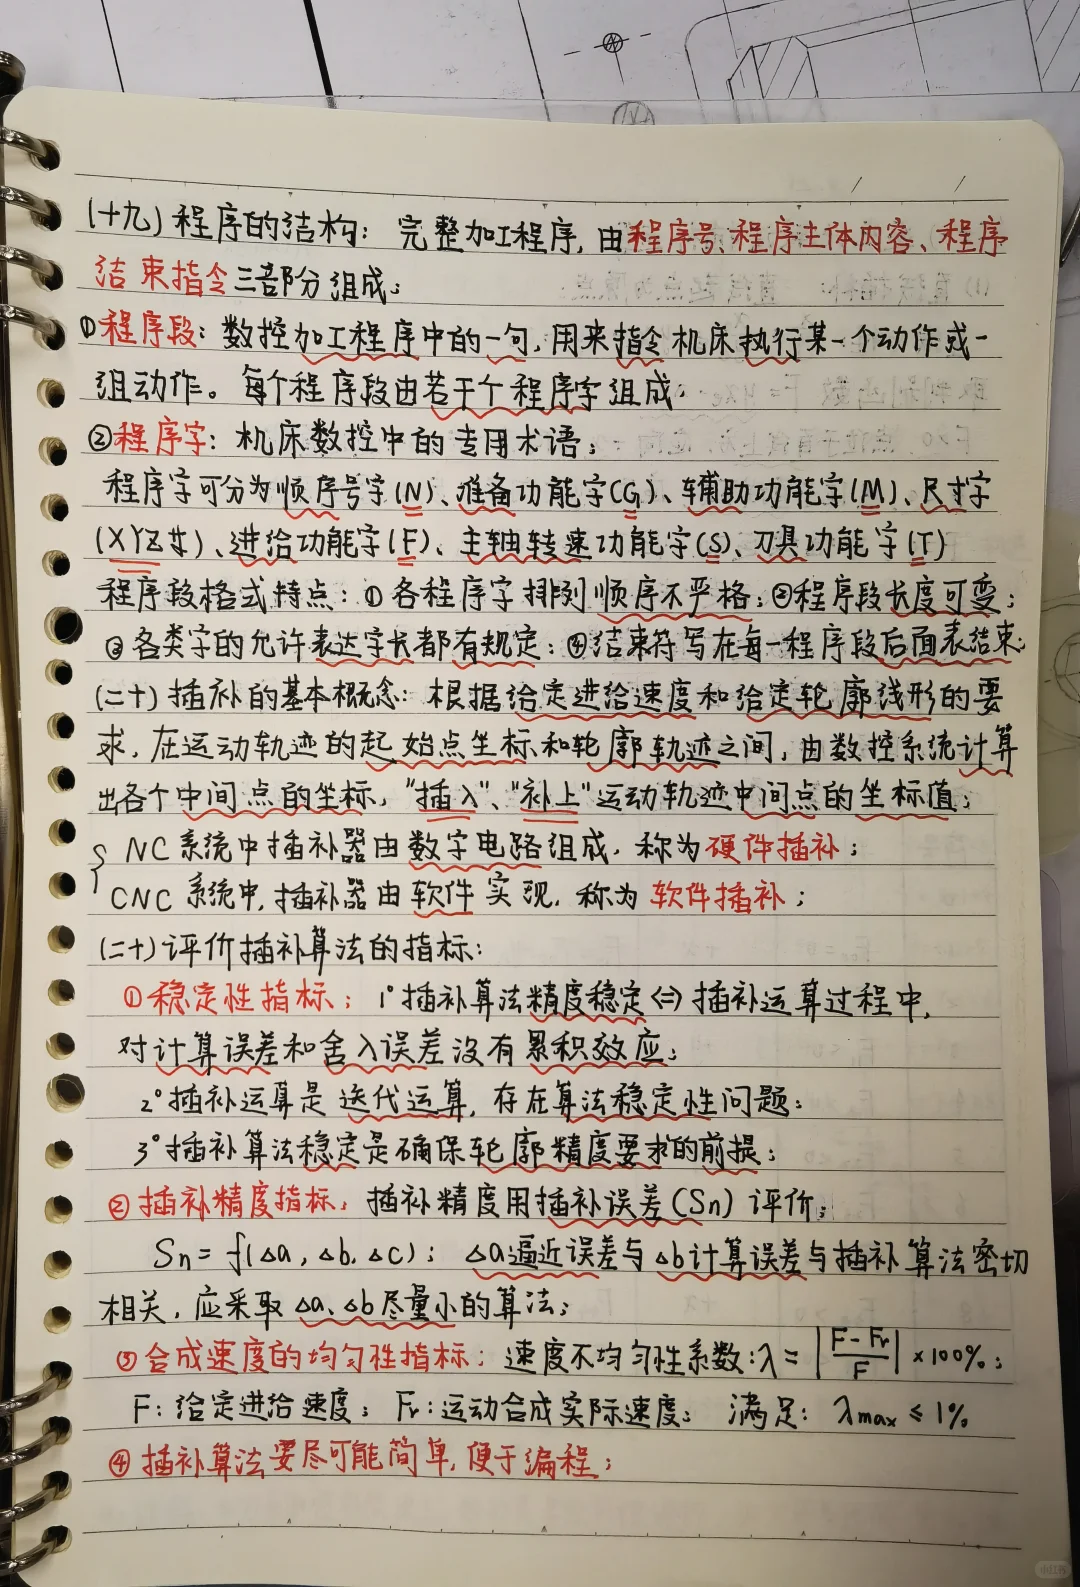 (十九)程序的结构：完整加工程序，由程序号、程序主体内容、程序
结束指令三部分组成。
①程序段：数控加工程序中的一句，用来指令机床执行某一个动作或一
组动作。每个程序段由若干个程序字组成.
②程序字：机床数控中的专用术语；
程序字可分为顺序号字(N)、准备功能字(G)、辅助功能字(M)、尺寸字
(XYZ等)、进给功能字(F)、主轴转速功能字(S)、刀具功能字(T)
程序段格式特点：①各程序字排列顺序不严格；②程序段长度可变；
③各类字的允许表达字长都有规定；④结束符写在每一程序段后面表结束;
(二十)插补的基本概念：根据给定进给速度和给定轮廓线形的要
求，在运动轨迹的起始点坐标和轮廓轨迹之间，由数控系统计算
出各个中间点的坐标，“插入”、“补上”运动轨迹中间点的坐标值；
NC系统中插补器由数字电路组成，称为硬件插补；
CNC系统中，插补器由软件实现，称为软件插补；
(二十)评价插补算法的指标：
①稳定性指标；1°插补算法精度稳定⇔插补运算过程中，
对计算误差和舍入误差没有累积效应；
2°插补运算是迭代运算，存在算法稳定性问题；
3°插补算法稳定是确保轮廓精度要求的前提；
②插补精度指标：插补精度用插补误差(Sn)评价；
Sn=f(△a,△b,△c)；△a逼近误差与△b计算误差与插补算法密切
相关，应采取△a、△b尽量小的算法；
③合成速度的均匀性指标；速度不均匀性系数：λ=|F-Fr/F|×100%；
F：给定进给速度；Fr：运动合成实际速度；满足：λmax≤1%
④插补算法要尽可能简单，便于编程；
小红书